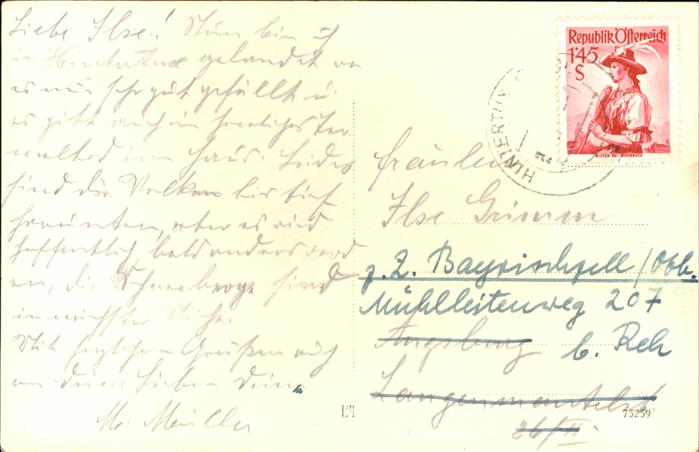 Liebe Ilse! Nun bin ich
in Hintertux gelandet wo
es mir sehr gut gefällt u.
es gibt auch ein herrliches Ter
malbad im Haus. Leider
sind die Wolken bis tief
herunten, aber es wird
hoffentlich bald anders werd
en, die Schneeberge sind
in nächster Nähe.
Mit herzlichen Grüßen auch
an deine Lieben Deine
M. Müller
Republik Österreich
1'45
S
HINTERTUX
Fräulein
Ilse Grimm
z. Z. Bayrischzell/Obb.
Mühlleitenweg 207
Augsburg b. Reh
Langenmantelstr
26/II.
73259